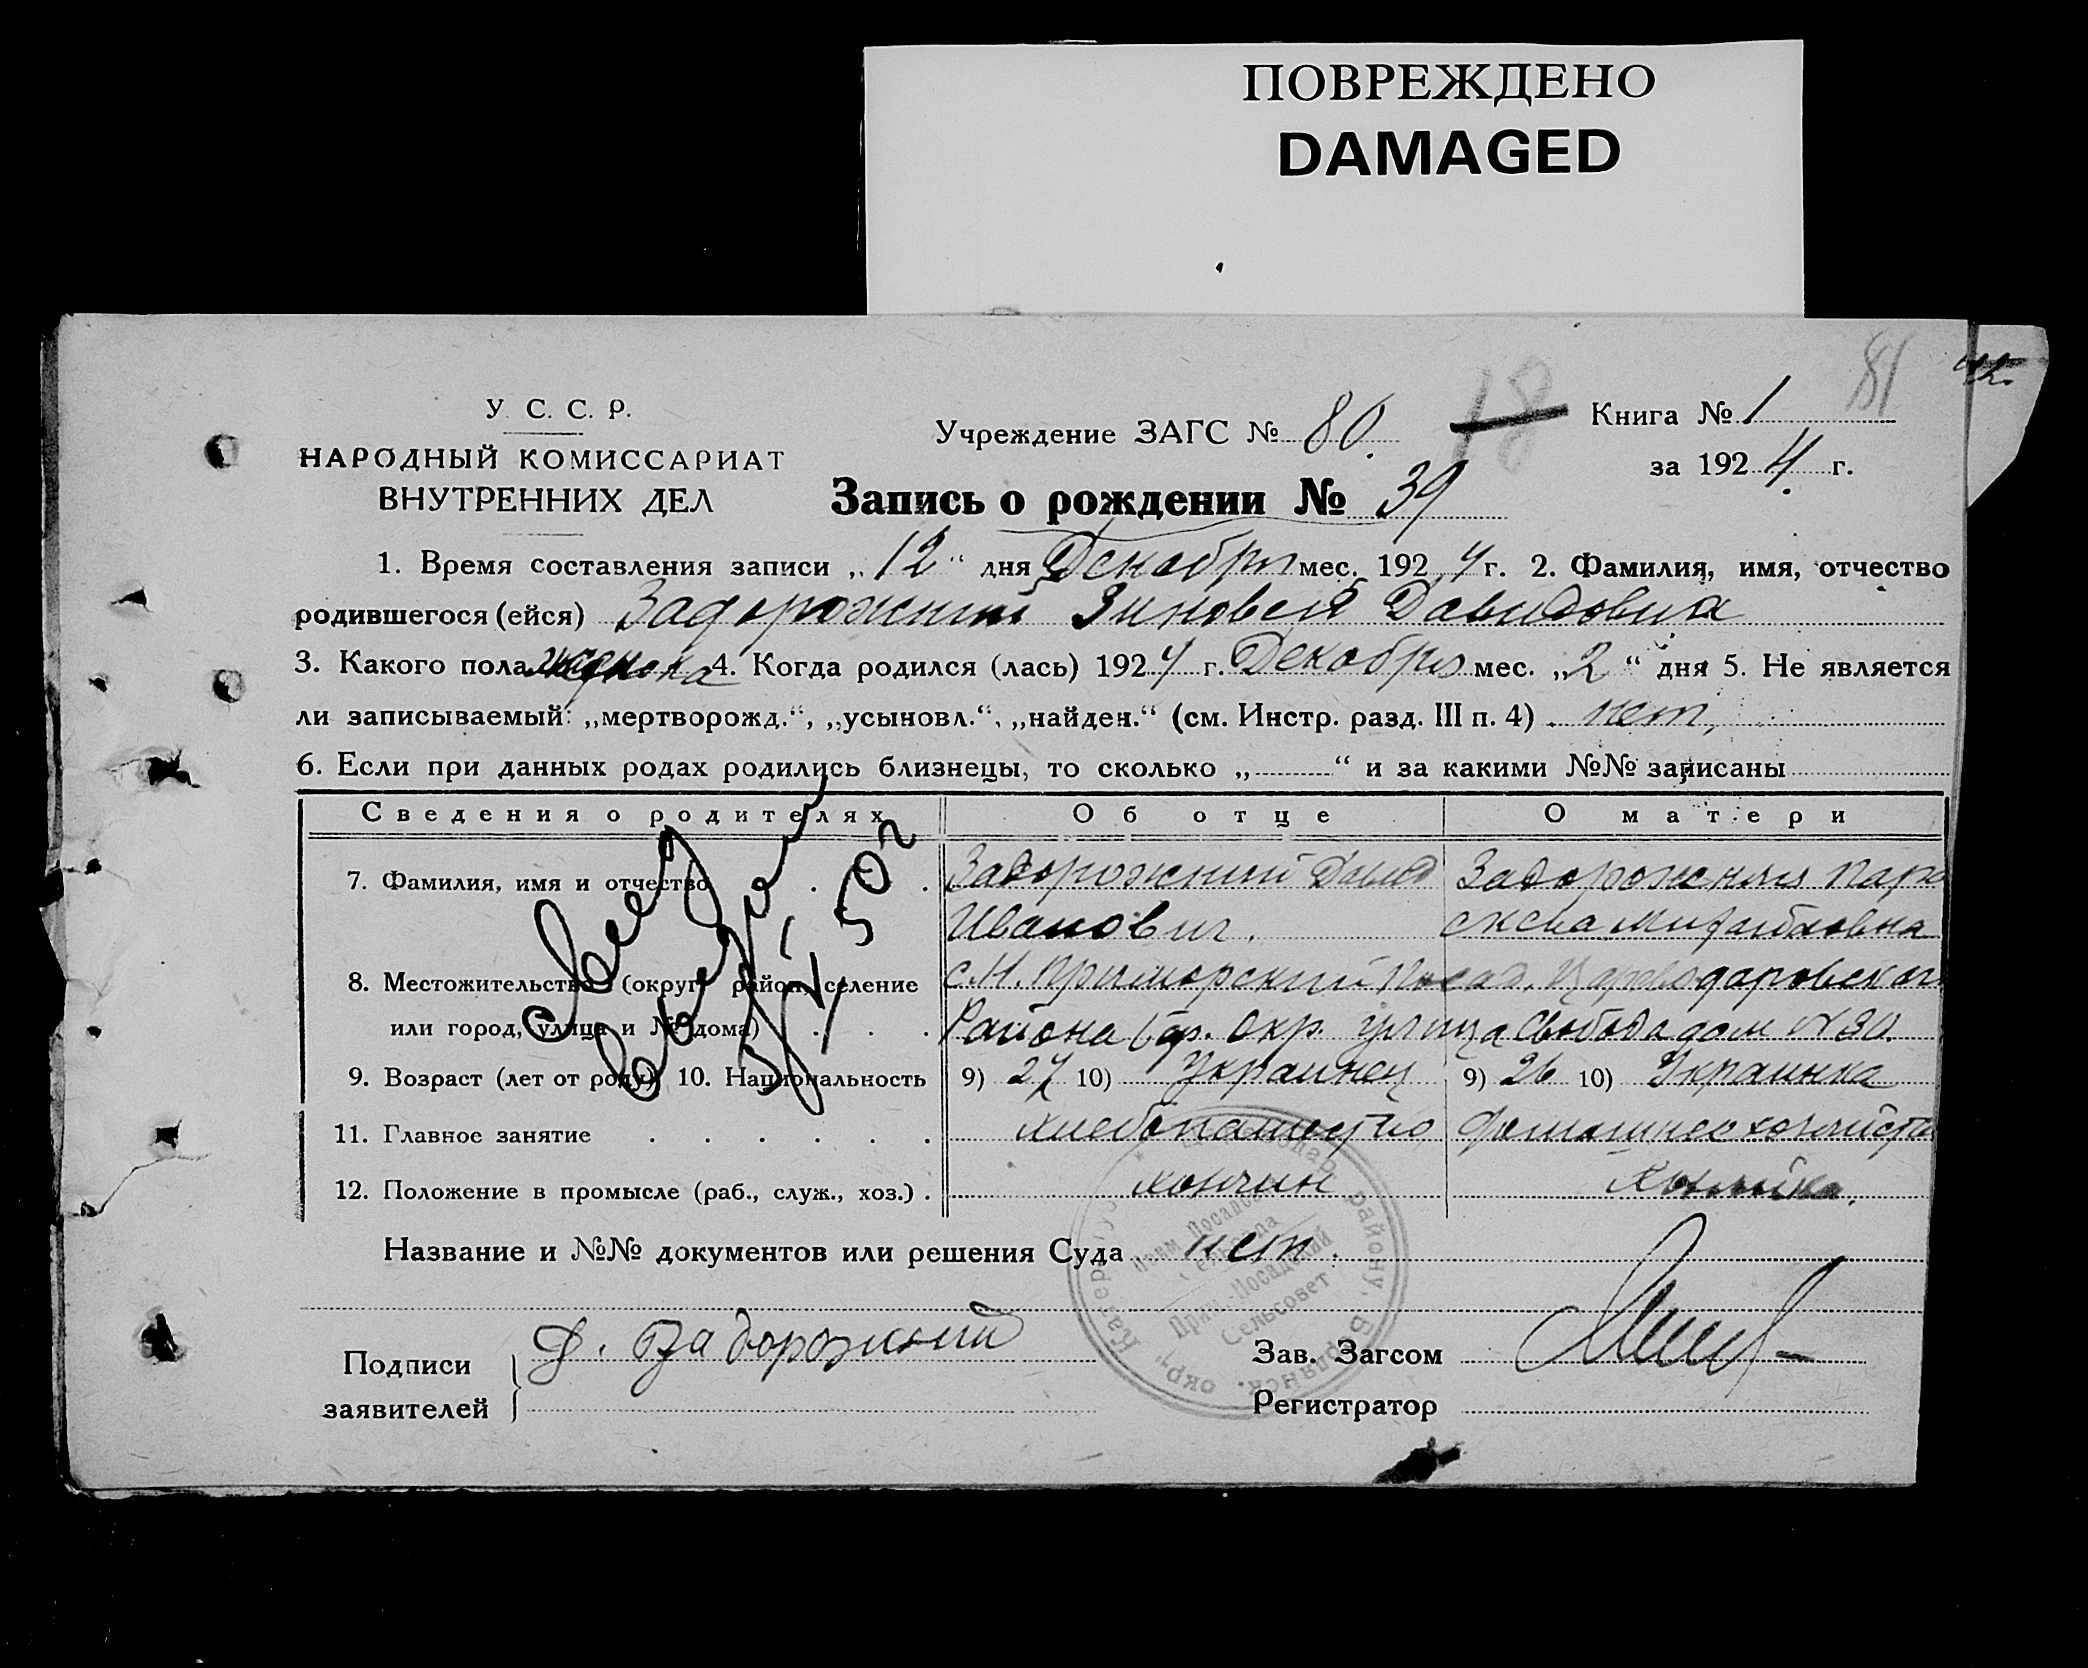 ПОВРЕЖДЕНО
DAMAGED
81
У. С. С. Р.
НАРОДНЫЙ КОМИССАРИАТ
ВНУТРЕННИХ ДЕЛ
Учреждение ЗАГС № 80.
18
Книга № 1
за 1924 г.
Запись о рождении № 39
1. Время составления записи „12" дня Декабря мес. 1924 г. 2. Фамилия, имя, отчество
родившегося (ейся) Задорожний Зиновей Давидович
3. Какого пола 4. Когда родился (лась) 1924 г. Декабря мес. „2" дня 5. Не является
ли записываемый: „мертворожд.", „усыновл.", „найден." (см. Инстр. разд. III п. 4) нет,
6. Если при данных родах родились близнецы, то сколько „ " и за какими №№ записаны
Сведения о родителях Об отце О матери
7. Фамилия, имя и отчество Задорожний Давид Задорожняя Пара
Иванович. скева Михайловна
8. Местожительство (округ, район, селение с. М. Приморский Посад,
или город, улица и № дома) Района Бер. Окр. улица Свобода дом № 30.
9. Возраст (лет от роду) 10. Национальность 9) 27 10) Украинец 9) 26 10) Украинка
11. Главное занятие хлебопашество
12. Положение в промысле (раб., служ., хоз.) хозяин хозяйка.
50 г
Название и №№ документов или решения Суда нет.
Прим.-Посадский
Сельсовет
Подписи
заявителей
Д. Задорожний
Зав. Загсом
Регистратор